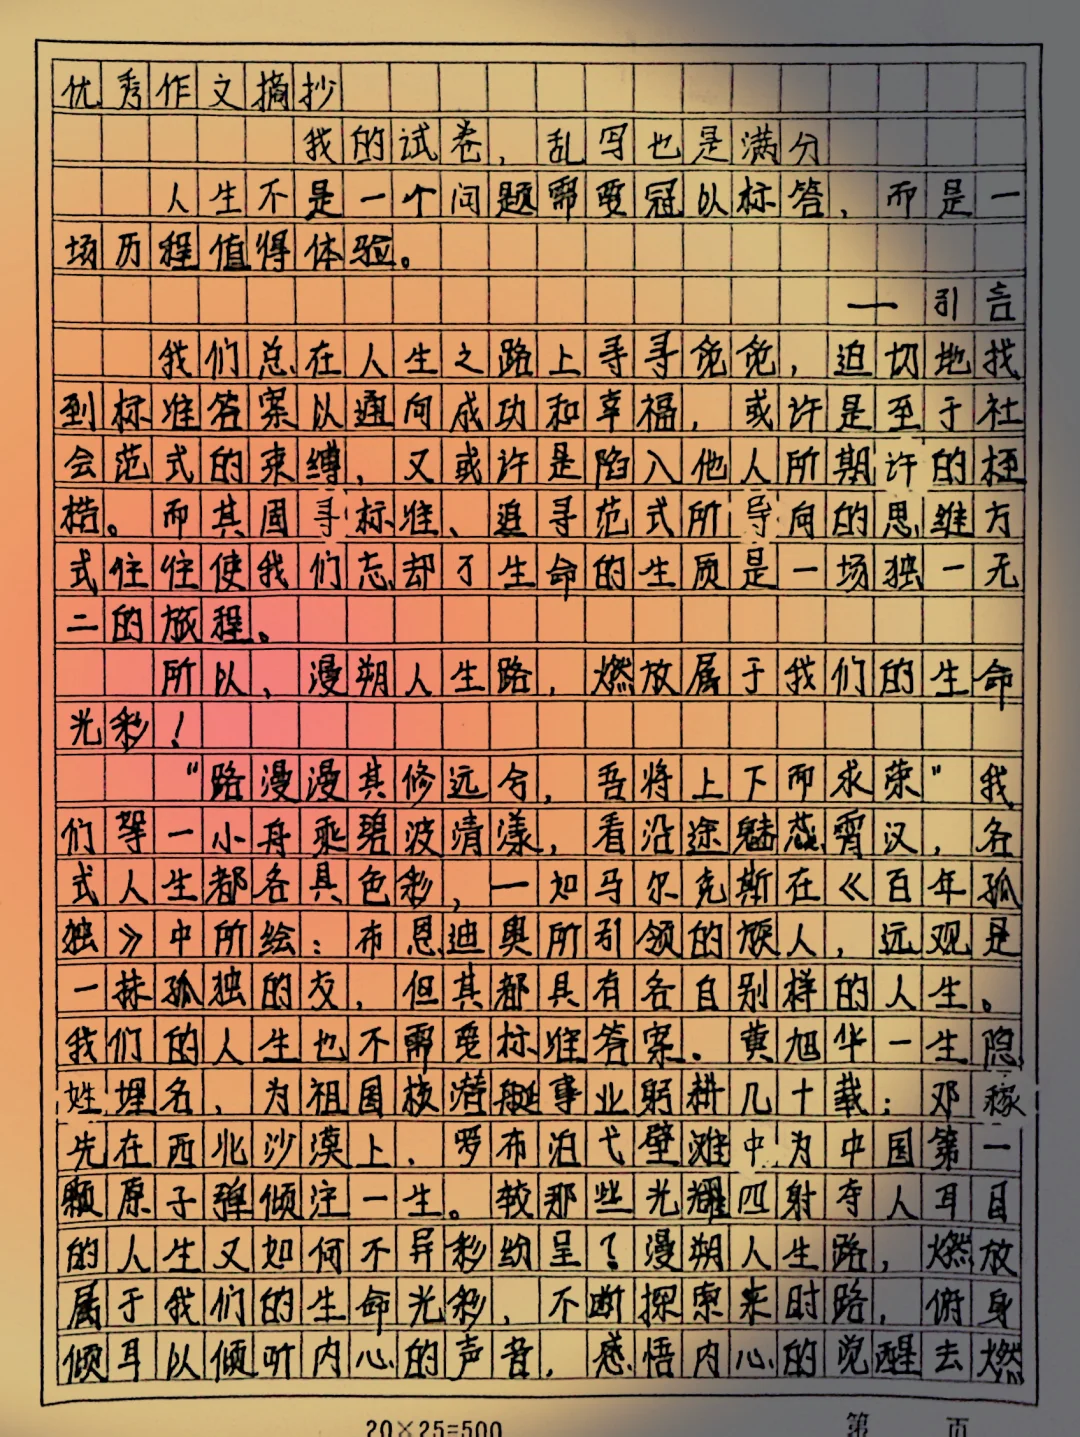 优秀作文摘抄
我的试卷，乱写也是满分
人生不是一个问题需要冠以标答，而是一
场历程值得体验。
——引言
我们总在人生之路上寻寻觅觅，迫切地找
到标准答案以通向成功和幸福，或许是至于社
会范式的束缚，又或许是陷入他人所期许的桎
梏。而其固寻标准、追寻范式所导向的思维方
式往往使我们忘却了生命的生质是一场独一无
二的旅程。
所以，漫朔人生路，燃放属于我们的生命
光彩！
“路漫漫其修远兮，吾将上下而求索”我
们挐一小舟乘碧波清漾，看沿途魅燕霄汉，各
式人生都各具色彩，一如马尔克斯在《百年孤
独》中所绘：布恩迪奥所引领的族人，远观是
一抹孤独的灰，但其都具有各自别样的人生。
我们的人生也不需要标准答案。黄旭华一生隐
姓埋名，为祖国核潜艇事业躬耕几十载；邓稼
先在西北沙漠上，罗布泊弋壁滩中为中国第一
颗原子弹倾注一生。较那些光耀四射夺人耳目
的人生又如何不异彩纷呈？漫朔人生路，燃放
属于我们的生命光彩，不断探索来时路，俯身
倾耳以倾听内心的声音，感悟内心的觉醒去燃
20×25=500
第 页